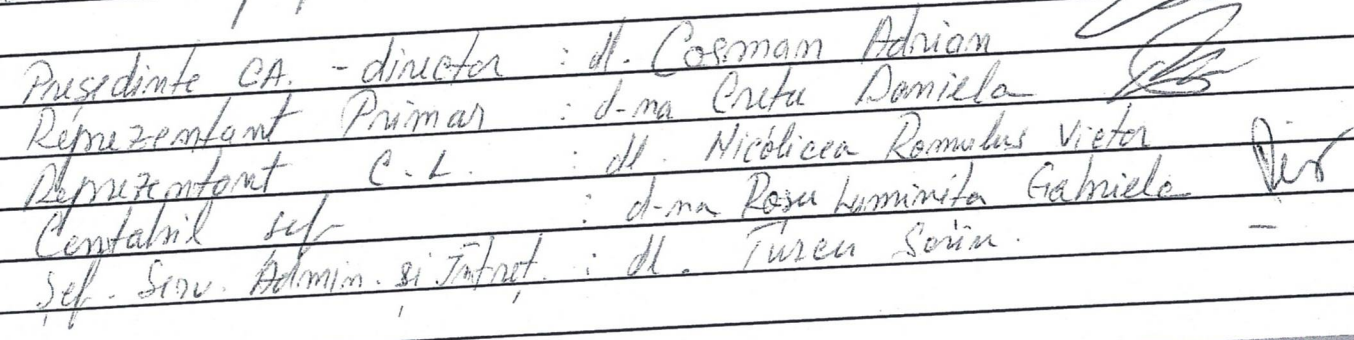 Președinte CA. - director : dl. Cosman Adrian
Reprezentant Primar : d-na Cretu Daniela
Reprezentant C.L. : dl. Nicolicea Romulus Victor
Contabil șef : d-na Roșu Luminița Gabriela
Șef. Serv. Admin. și Întreț. : dl. Turcu Sorin.